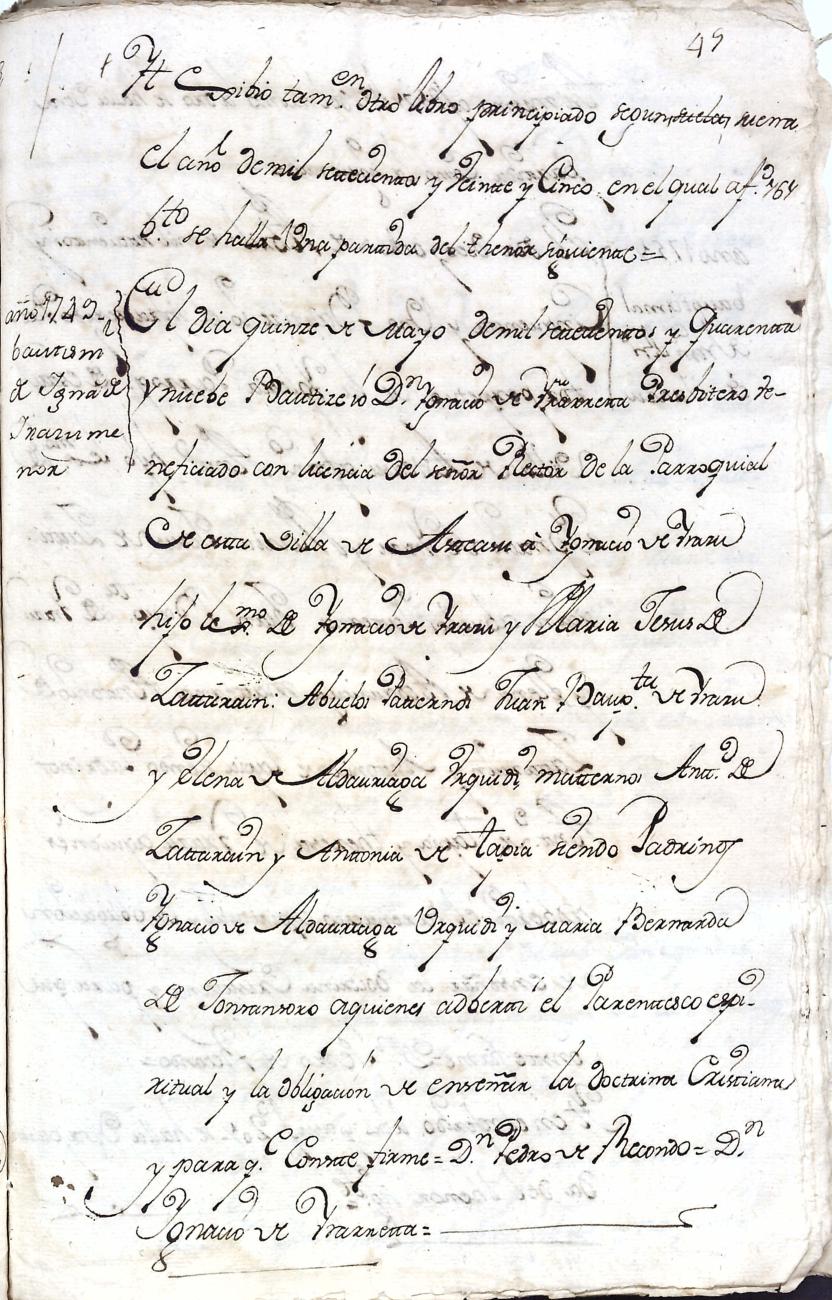 49
Yt Exsibio tamn. en otro libro principiado segun, suela, suena
el año de mil settecientos y Veinte y Cinco en el qual a fo. 164
bto se halla Una partida del thenor siguiente =
año 1749
bautism
de Ignao de
Yrazu me
nor
El dia quinze de Mayo de mil settecientos y Quarentta
y nuebe Bautize io Dn Ygnacio de Yrarretta Presbitero be-
neficiado con licencia del señor Rector de la Parroquial
de estta Villa de Astteasu a Ygnacio de Yrazu
hijo lexmo. de Ygnacio de Yrazu y Maria Jesus de
Lattarain: Abuelos Patternos Juan Baupta. de Yrazu
y Elena de Aldaurtiaga Urquidi,матternos Antto. de
Lattarain y Anttonia de tapia siendo Padrinos
Ygnacio de Aldaurtiaga Urquidi y Maria Bernarda
de Sonsansoro aquienes adberti el Parenttesco espi-
ritual y la obligacion de enseñar la doctrina Cristiana
y para qe. Constte firme = Dn. Pedro de Recondo = Dn.
Ygnacio de Yrarretta =